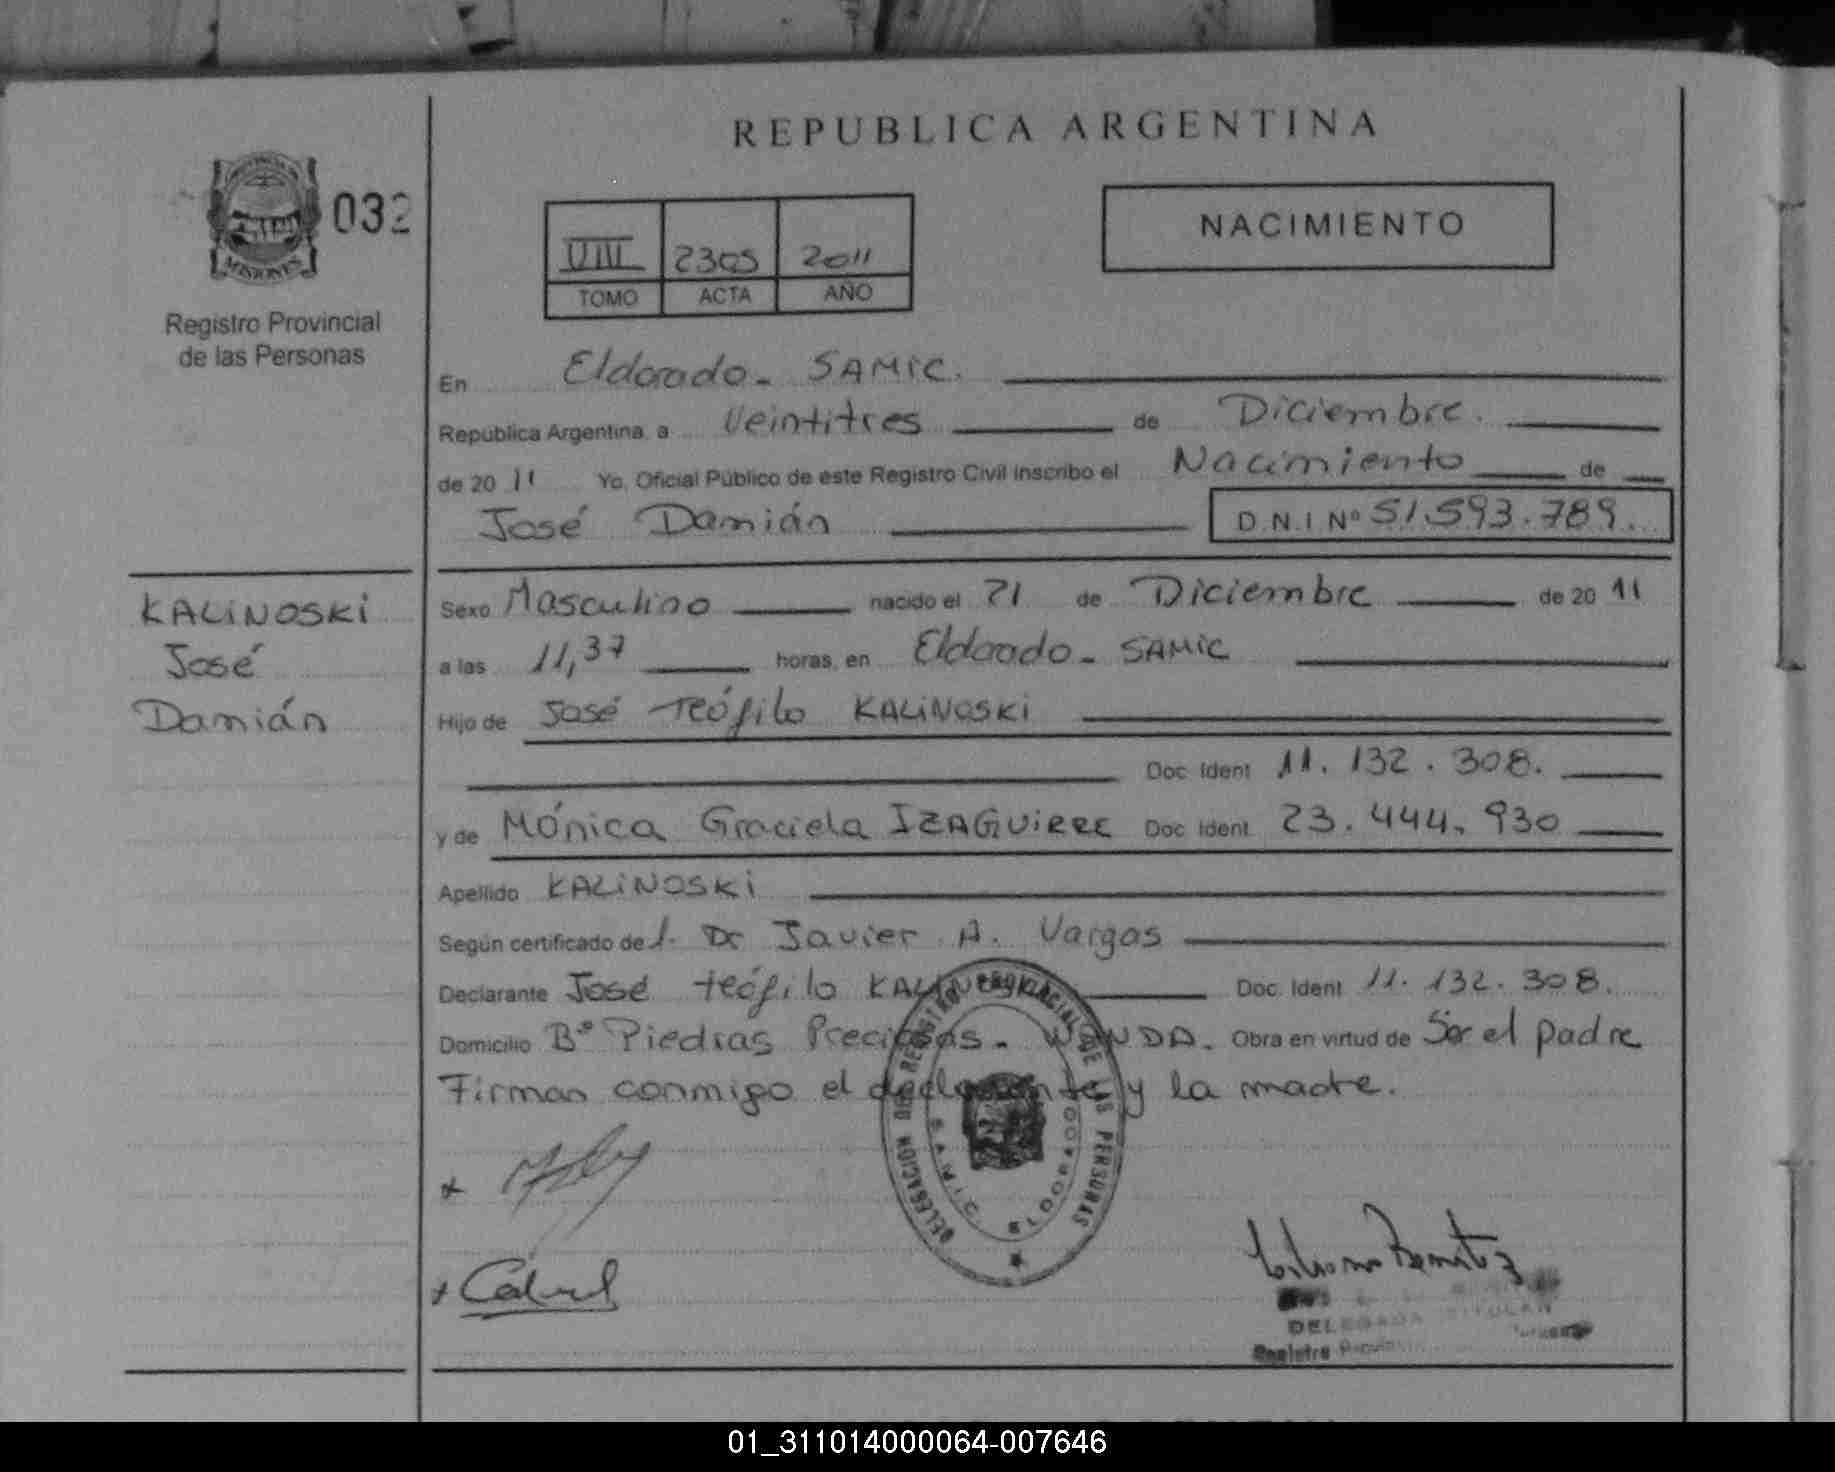 REPUBLICA ARGENTINA
PROVINCIA
MISIONES
032
Registro Provincial
de las Personas
VIII 2305 2011
TOMO ACTA AÑO
NACIMIENTO
En Eldorado - SAMIC.
República Argentina, a Veintitres de Diciembre.
de 20 11 Yo, Oficial Público de este Registro Civil inscribo el Nacimiento de
José Damián D.N.I Nº 51.593.789.
KALINOSKI
José
Damián
Sexo Masculino nacido el 21 de Diciembre de 20 11
a las 11,37 horas, en Eldorado - SAMIC
Hijo de José Teófilo KALINOSKI
Doc. Ident 11.132.308.
y de Mónica Graciela IZAGUIRRE Doc. Ident. 23.444.930
Apellido KALINOSKI
Según certificado del. Dr Javier A. Vargas
Declarante José teófilo KALINOSKI Doc. Ident 11.132.308.
Domicilio Bº Piedras Preciosas - WANDA. Obra en virtud de Ser el padre
Firman conmigo el declarante y la madre.
DELEGACION DEL REGISTRO PROVINCIAL DE LAS PERSONAS
S.A.M.I.C. ELDORADO
DELEGADA TITULAR
Registro
01_311014000064-007646